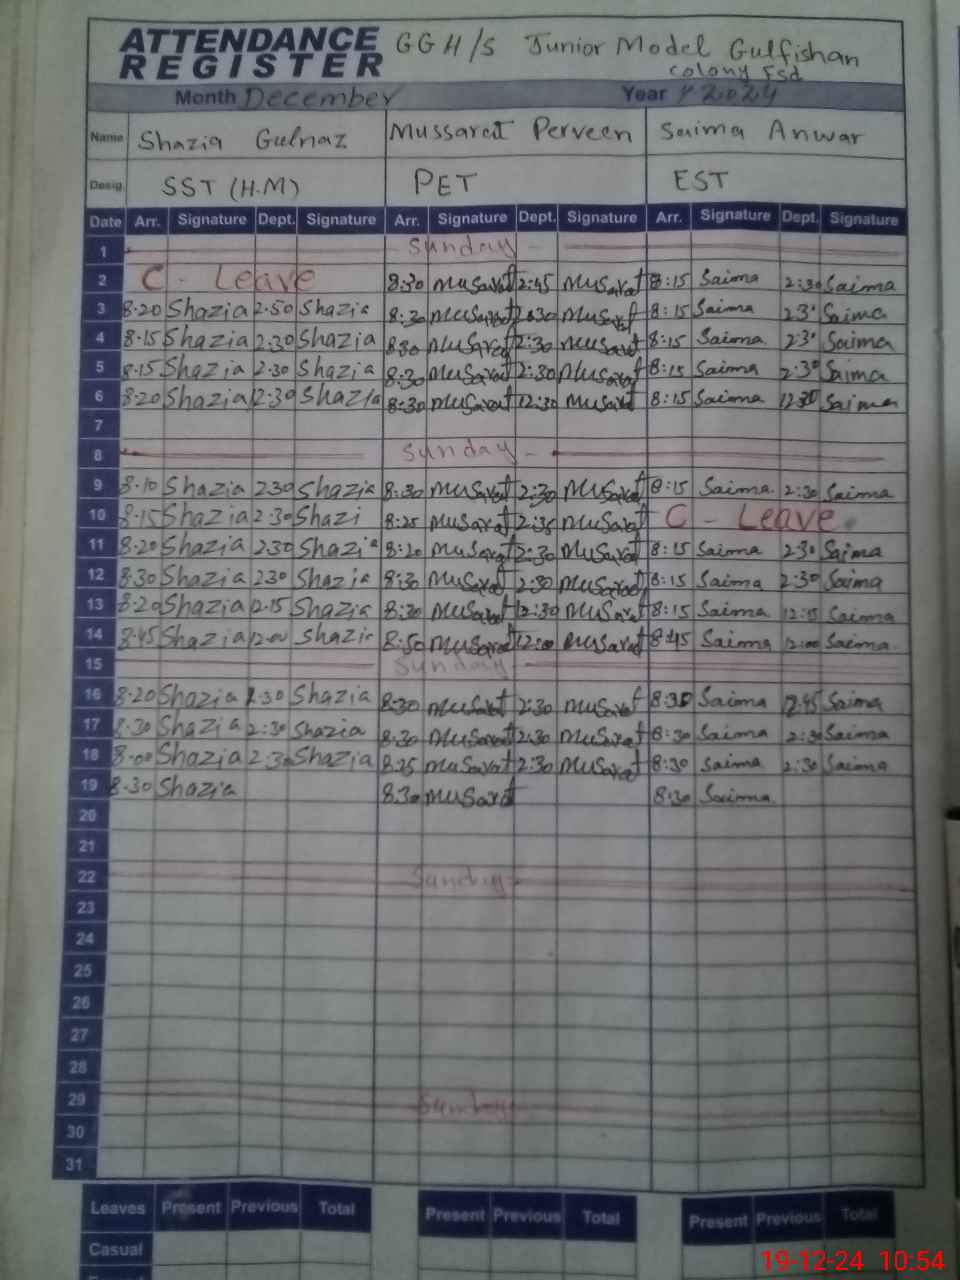 ATTENDANCE REGISTER GGH/S Junior Model Gulfishan
colony Fsd
Month December Year 2024
Name Shazia Gulnaz Mussarat Perveen Saima Anwar
Desig. SST (H.M) PET EST
Date Arr. Signature Dept. Signature Arr. Signature Dept. Signature Arr. Signature Dept. Signature
1 Sunday
2 C - Leave 8:30 Musarat 2:45 Musarat 8:15 Saima 2:30 Saima
3 8.20 Shazia 2.50 Shazia 8:30 Musarat 2:30 Musarat 8:15 Saima 2:30 Saima
4 8.15 Shazia 2.30 Shazia 830 Musarat 2:30 Musarat 8:15 Saima 2:30 Saima
5 8.15 Shazia 2.30 Shazia 8:30 Musarat 2:30 Musarat 8:15 Saima 2:30 Saima
6 8.20 Shazia 12:30 Shazia 8:30 Musarat 12:30 Musarat 8:15 Saima 12:30 Saima
7
8 Sunday
9 8.10 Shazia 230 Shazia 8:30 Musarat 2:30 Musarat 8:15 Saima 2:30 Saima
10 8.15 Shazia 2.30 Shazi 8:25 Musarat 2:35 Musarat C - Leave
11 8.20 Shazia 230 Shazia 8:20 Musarat 2:30 Musarat 8:15 Saima 2:30 Saima
12 8.30 Shazia 230 Shazia 8:30 Musarat 2:30 Musarat 8:15 Saima 2:30 Saima
13 8.20 Shazia 12.15 Shazia 8:30 Musarat 12:30 Musarat 8:15 Saima 12:15 Saima
14 8.45 Shazia 12.00 Shazia 8:50 Musarat 12:00 Musarat 8:45 Saima 12:00 Saima
15 Sunday
16 8.20 Shazia 2.30 Shazia 8:30 Musarat 2:30 Musarat 8:30 Saima Saima
17 8.30 Shazia 2:30 Shazia 8:30 Musarat 2:30 Musarat 8:30 Saima 2:30 Saima
18 8.00 Shazia 2:30 Shazia 8:25 Musarat 2:30 Musarat 8:30 Saima 2:30 Saima
19 8.30 Shazia 8:30 Musarat 8:30 Saima
20
21
22 Sunday
23
24
25
26
27
28
29 Sunday
30
31
Leaves Present Previous Total Present Previous Total Present Previous Total
Casual
19-12-24 10:54